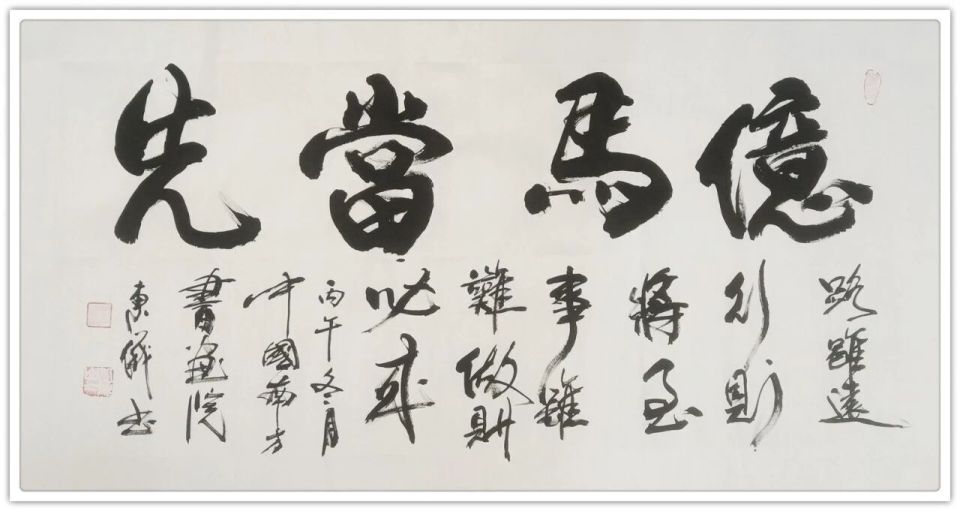 億馬當先
路雖遠
行則
將至
事雖
難做則
必成
丙午冬月
中國南方
書畫院
東儀書